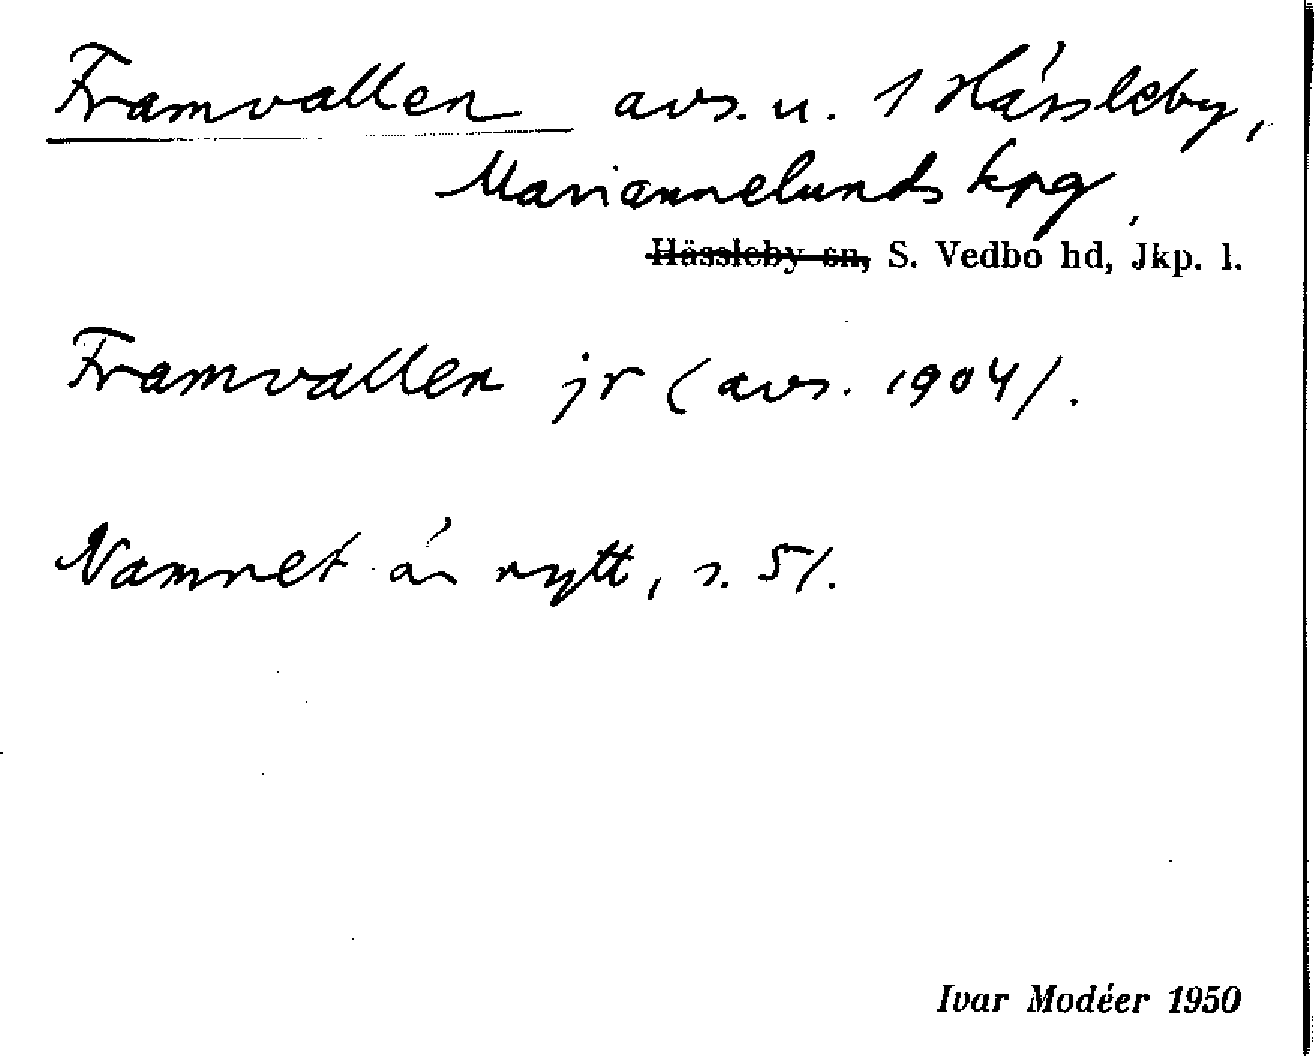 Framvallen avs. u. 1 Hässleby,
Mariannelunds kpg,
Hässleby sn, S. Vedbo hd, Jkp. l.
Framvallen jr (avs. 1904/.
Namnet är nytt, s. 5/.
Ivar Modéer 1950